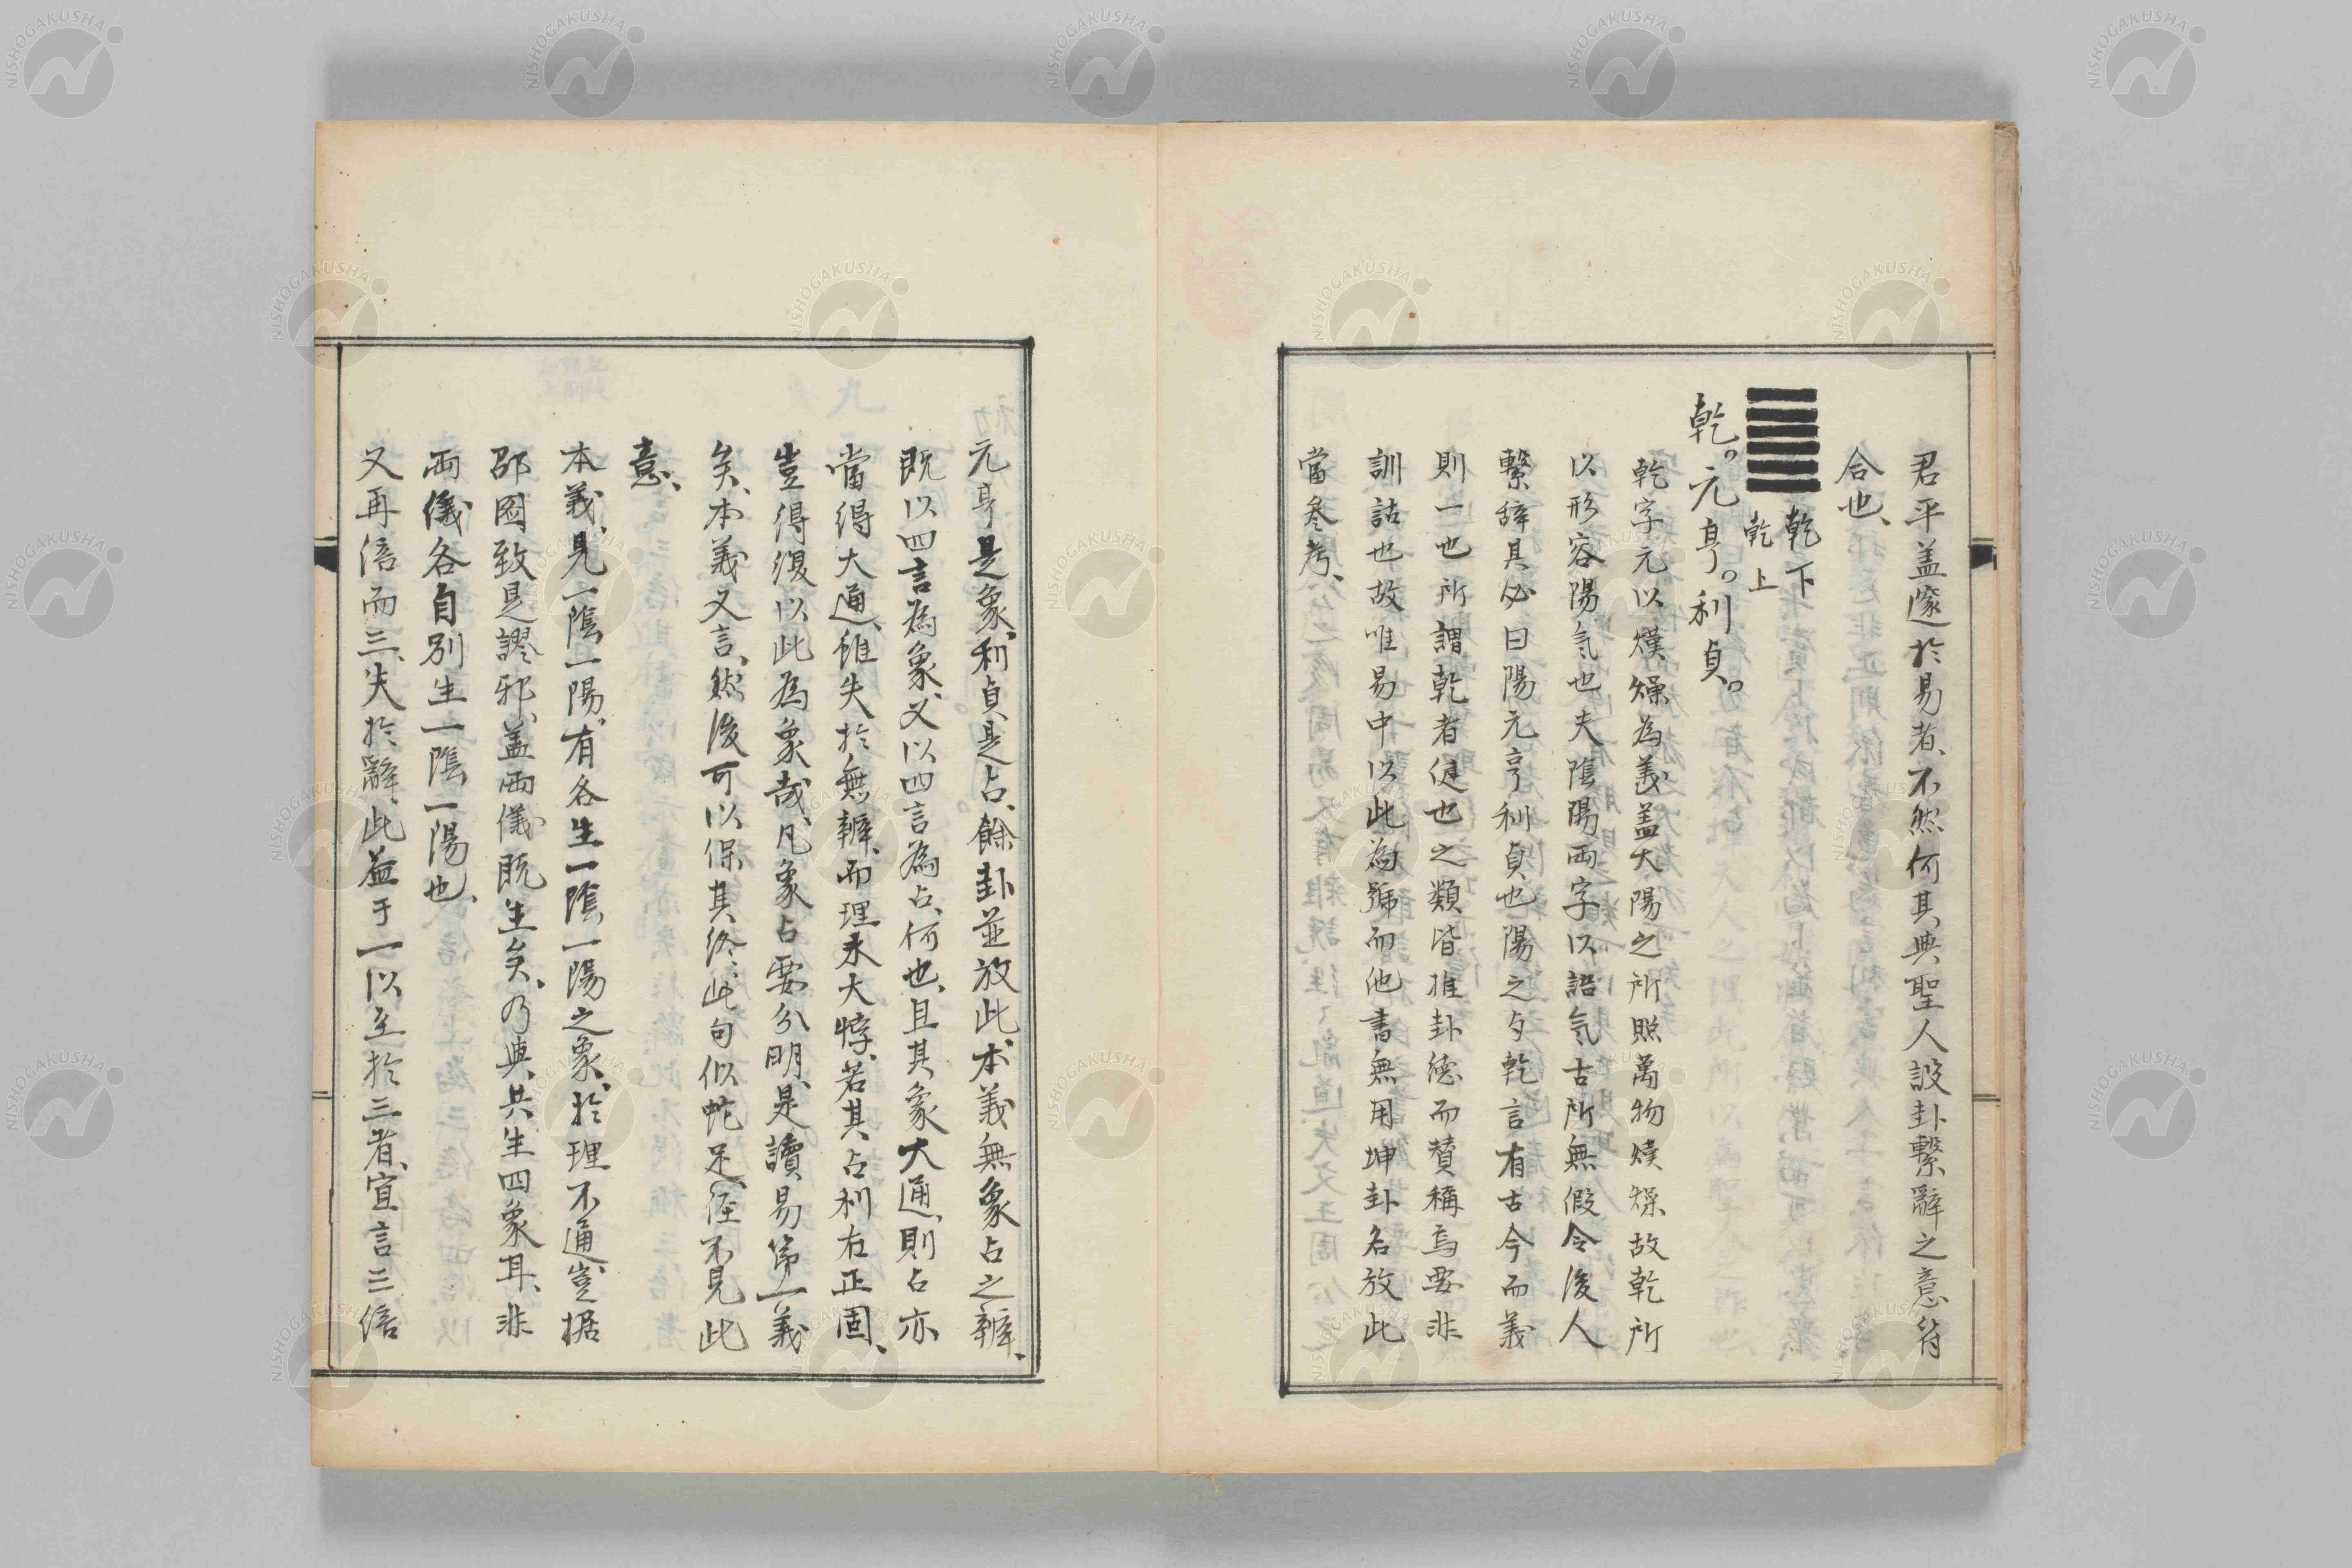 君平盖邃於易者、不然何其與聖人設卦繫辭之意符
合也、
乾下
乾上
乾。元亨。利貞。
乾字元以熯燥為義盖大陽之所照萬物熯燥故乾所
以形容陽気也夫陰陽両字以語気古所無假令後人
繫辞其必曰陽元亨利貞也陽之与乾言有古今而義
則一也所謂乾者健也之類皆推卦德而賛稱焉要非
訓詁也故唯易中以此為號而他書無用坤卦名放此
當参考、
元亨是象、利貞是占、餘卦並放此、本義無象占之辨、
既以四言為象、又以四言為占、何也、且其象大通、則占亦
當得大通、雖失於無辨、而理未大悖、若其占利在正固、
豈得復以此為象哉、凡象占要分明、是讀易第一義
矣、本義又言、然後可以保其終、此句似蛇足、經不見此
意、
本義、見一陰一陽、有各生一陰一陽之象、於理不通、豈据
邵図致是謬邪、盖両儀既生矣、乃與共生四象耳、非
両儀各自別生一陰一陽也、
又再倍而三、失於辭、此益于一以至於三者、宜言三倍
NISHOGAKUSHA